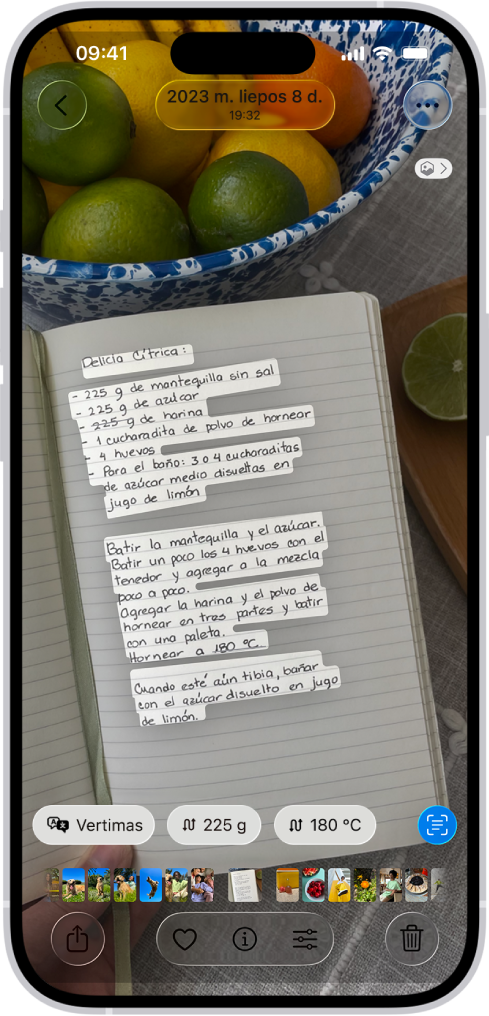 09:41
2023 m. liepos 8 d.
19:32
Delicia Cítrica:
- 225 g de mantequilla sin sal
- 225 g de azúcar
- 225 g de harina
- 1 cucharadita de polvo de hornear
- 4 huevos
- Para el baño: 3 o 4 cucharaditas
de azúcar medio disueltas en
jugo de limón
Batir la mantequilla y el azúcar.
Batir un poco los 4 huevos con el
tenedor y agregar a la mezcla
poco a poco.
Agregar la harina y el polvo de
hornear en tres partes y batir
con una paleta.
Hornear a 180 °C.
Cuando esté aún tibia, bañar
con el azúcar disuelto en jugo
de limón.
Vertimas
225 g
180 °C